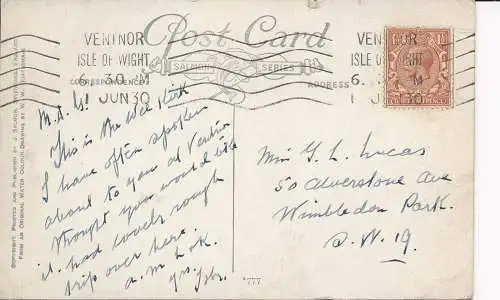 Post Card
SALMON SERIES
CORRESPONDENCE
ADDRESS
VENTNOR
ISLE OF WIGHT
6. 30 PM
1 JUN 30
VENTNOR
ISLE OF WIGHT
6. 
1
This is the old Kirk
I have often spoken
about to you at Ventnor
thought you would like
it. had lovely rough
trip over here.
Miss G. L. Lucas
50 Alverstone Ave
Wimbledon Park.
S.W. 19.
COPYRIGHT. PRINTED AND PUBLISHED BY J. SALMON, SEVENOAKS, ENGLAND.
FROM AN ORIGINAL WATER COLOUR DRAWING BY W. H.